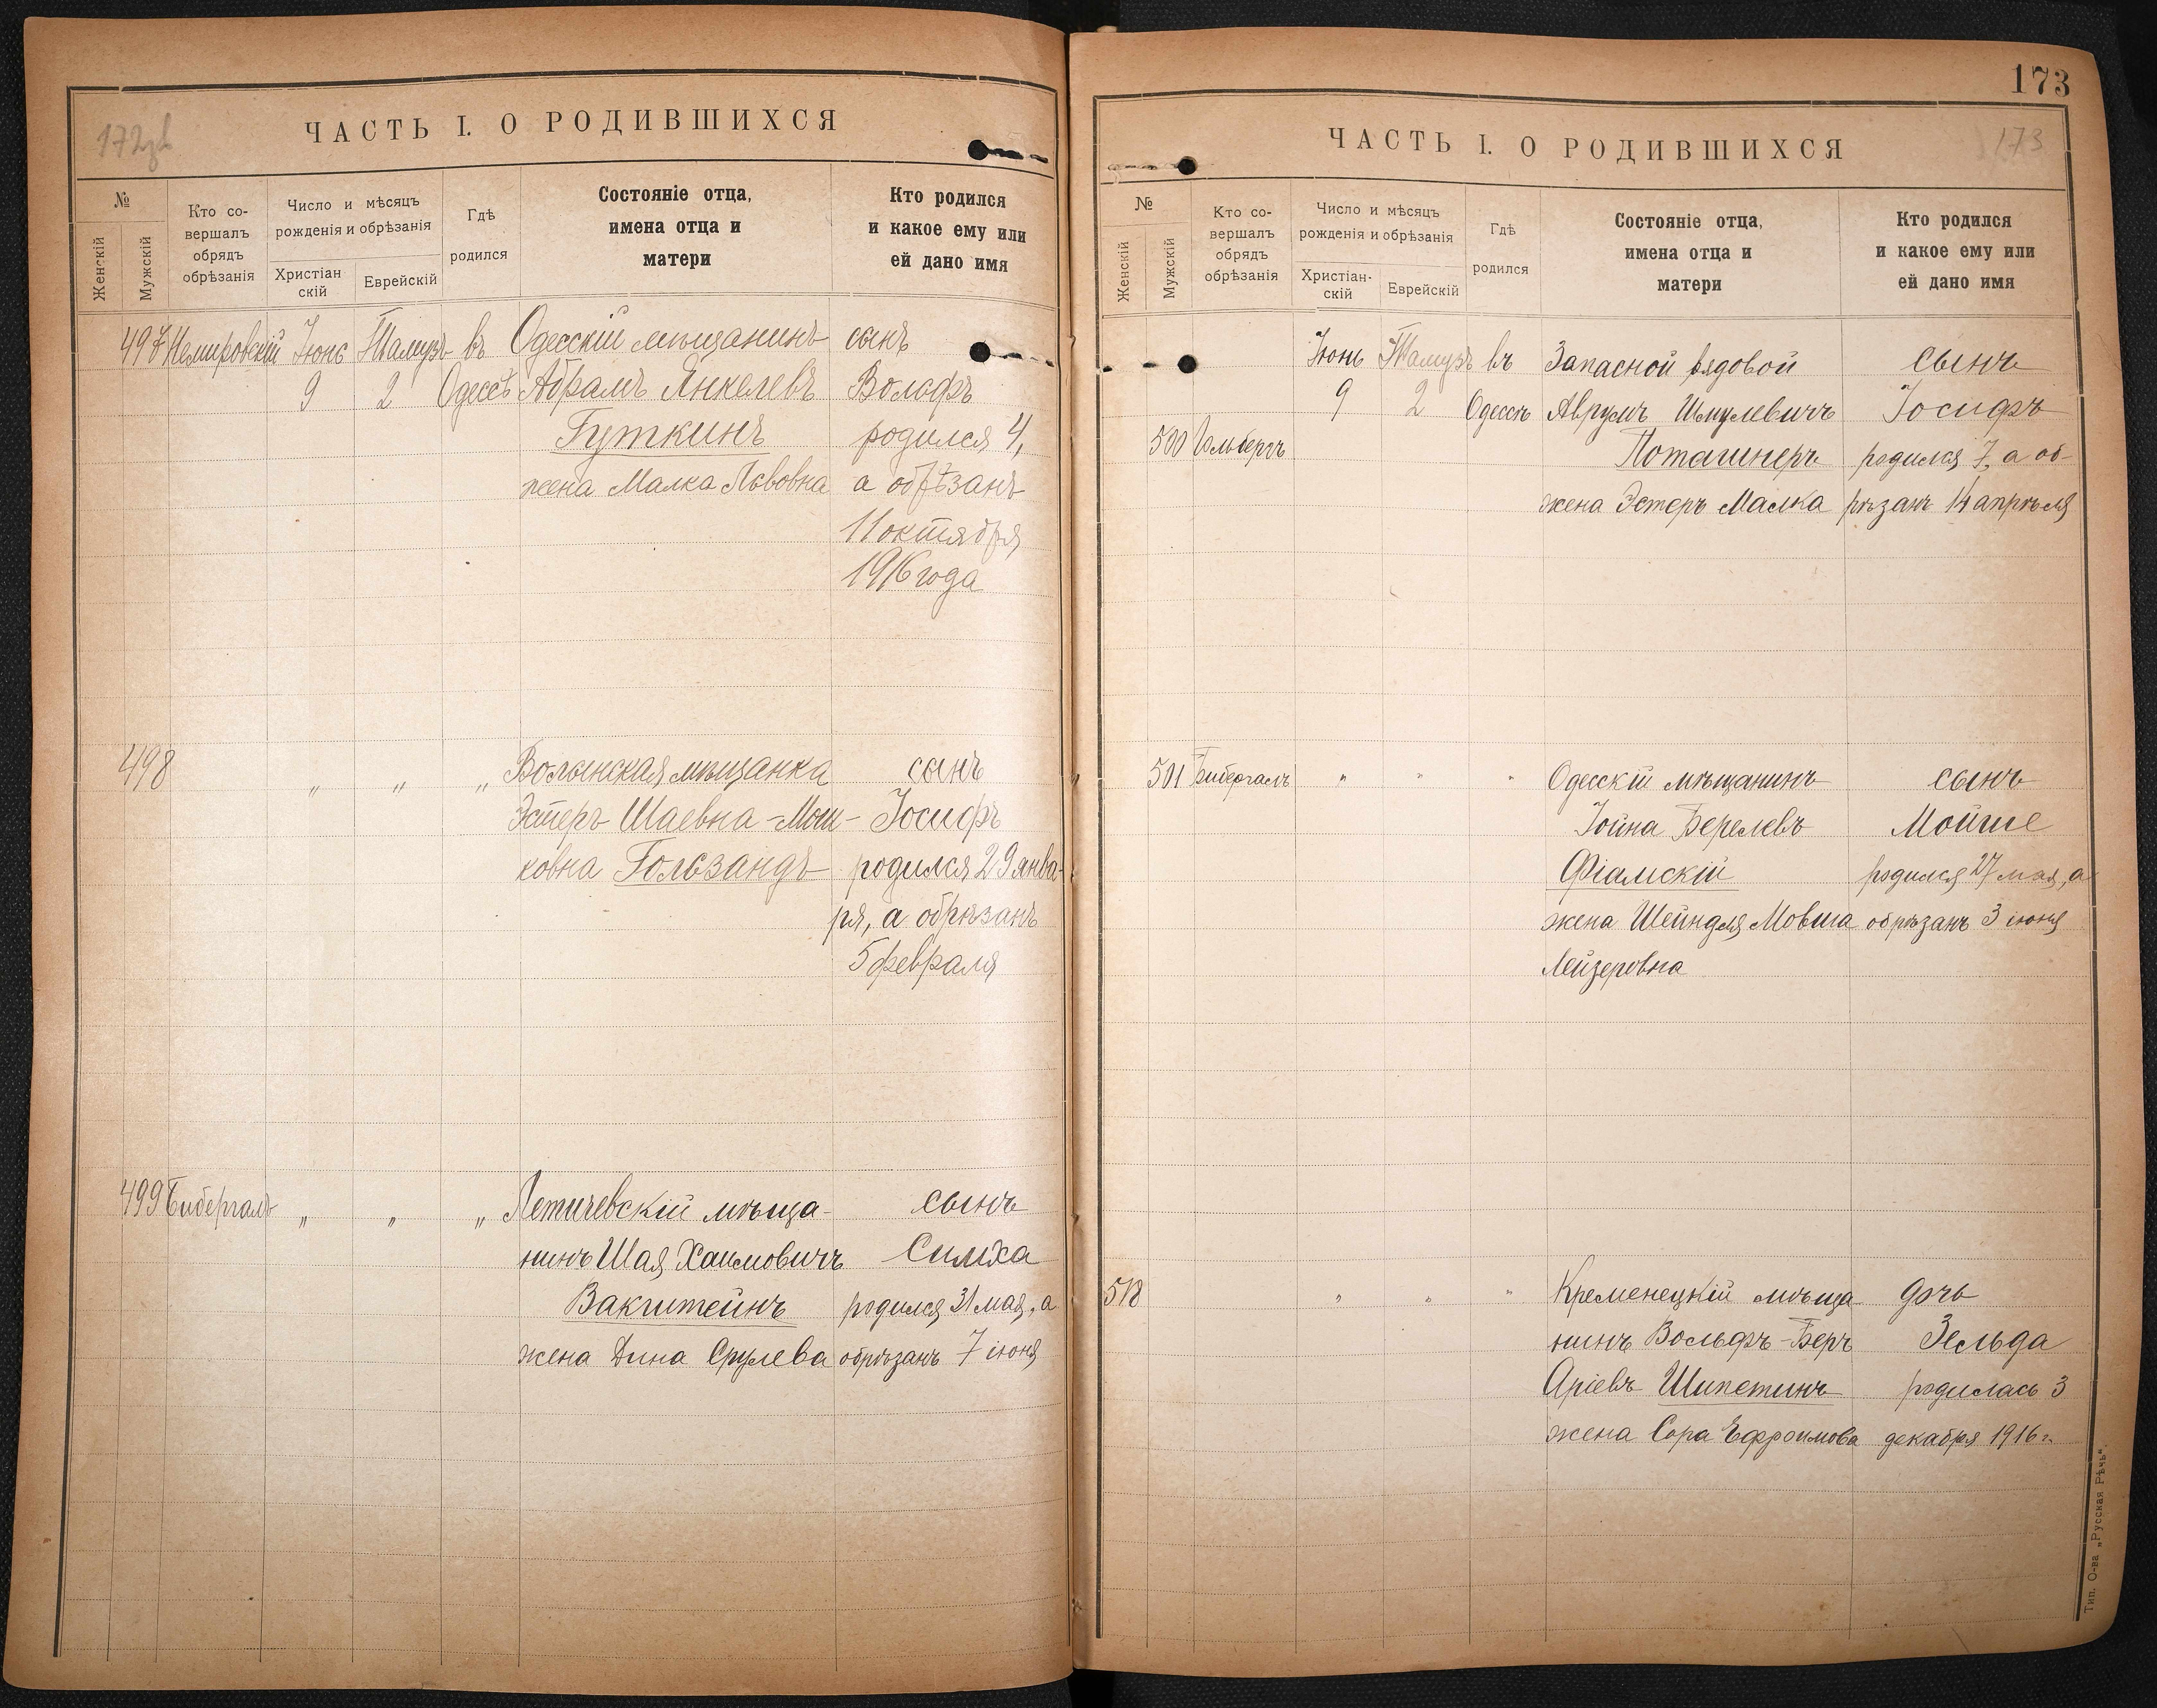 172зв
ЧАСТЬ I. О РОДИВШИХСЯ
№
Женскій
Мужскій
Кто со-
вершалъ
обрядъ
обрѣзанія
Число и мѣсяцъ
рожденія и обрѣзанія
Христіан
скій
Еврейскій
Гдѣ
родился
Состояніе отца,
имена отца и
матери
Кто родился
и какое ему или
ей дано имя
497 Немировскій Іюнь Тамузъ въ Одесскій мѣщанинъ сынъ
9 2 Одессѣ Абрамъ Янкелевъ Вольфъ
Гуткинъ родился 4,
жена Малка Львовна а обрѣзанъ
11 октября
1916 года
498 " " " Волынская мѣщанка сынъ
Эстеръ Шаевна-Мош- Іосифъ
ковна Гользандъ родился 29 янва-
ря, а обрѣзанъ
5 февраля
499 Бибергалъ " " " Летичевскій мѣща- сынъ
нинъ Шая Хаимовичъ Симха
Вакштейнъ родился 31 мая, а
жена Дина Срулева обрѣзанъ 7 іюня
173
173
ЧАСТЬ I. О РОДИВШИХСЯ
№
Женскій
Мужскій
Кто со-
вершалъ
обрядъ
обрѣзанія
Число и мѣсяцъ
рожденія и обрѣзанія
Христіан-
скій
Еврейскій
Гдѣ
родился
Состояніе отца,
имена отца и
матери
Кто родился
и какое ему или
ей дано имя
Іюнь Тамузъ въ Запасной рядовой сынъ
9 2 Одессѣ Аврумъ Шмулевичъ Іосифъ
500 Гольбергъ Поташнеръ родился 7, а об-
жена Эстеръ Малка рѣзанъ 14 апрѣля
501 Бибергалъ " " " Одесскій мѣщанинъ сынъ
Іойна Берелевъ Мойше
Фіалскій родился 27 мая, а
жена Шейндля Мовша обрѣзанъ 3 іюня
Лейзеровна
" " " Кременецкій мѣща- дочь
нинъ Вольфъ-Беръ Зельда
Аріевъ Шипетинъ родилась 3
жена Сора Ефроимова декабря 1916 г.
Тип. О-ва „Русская Рѣчь“